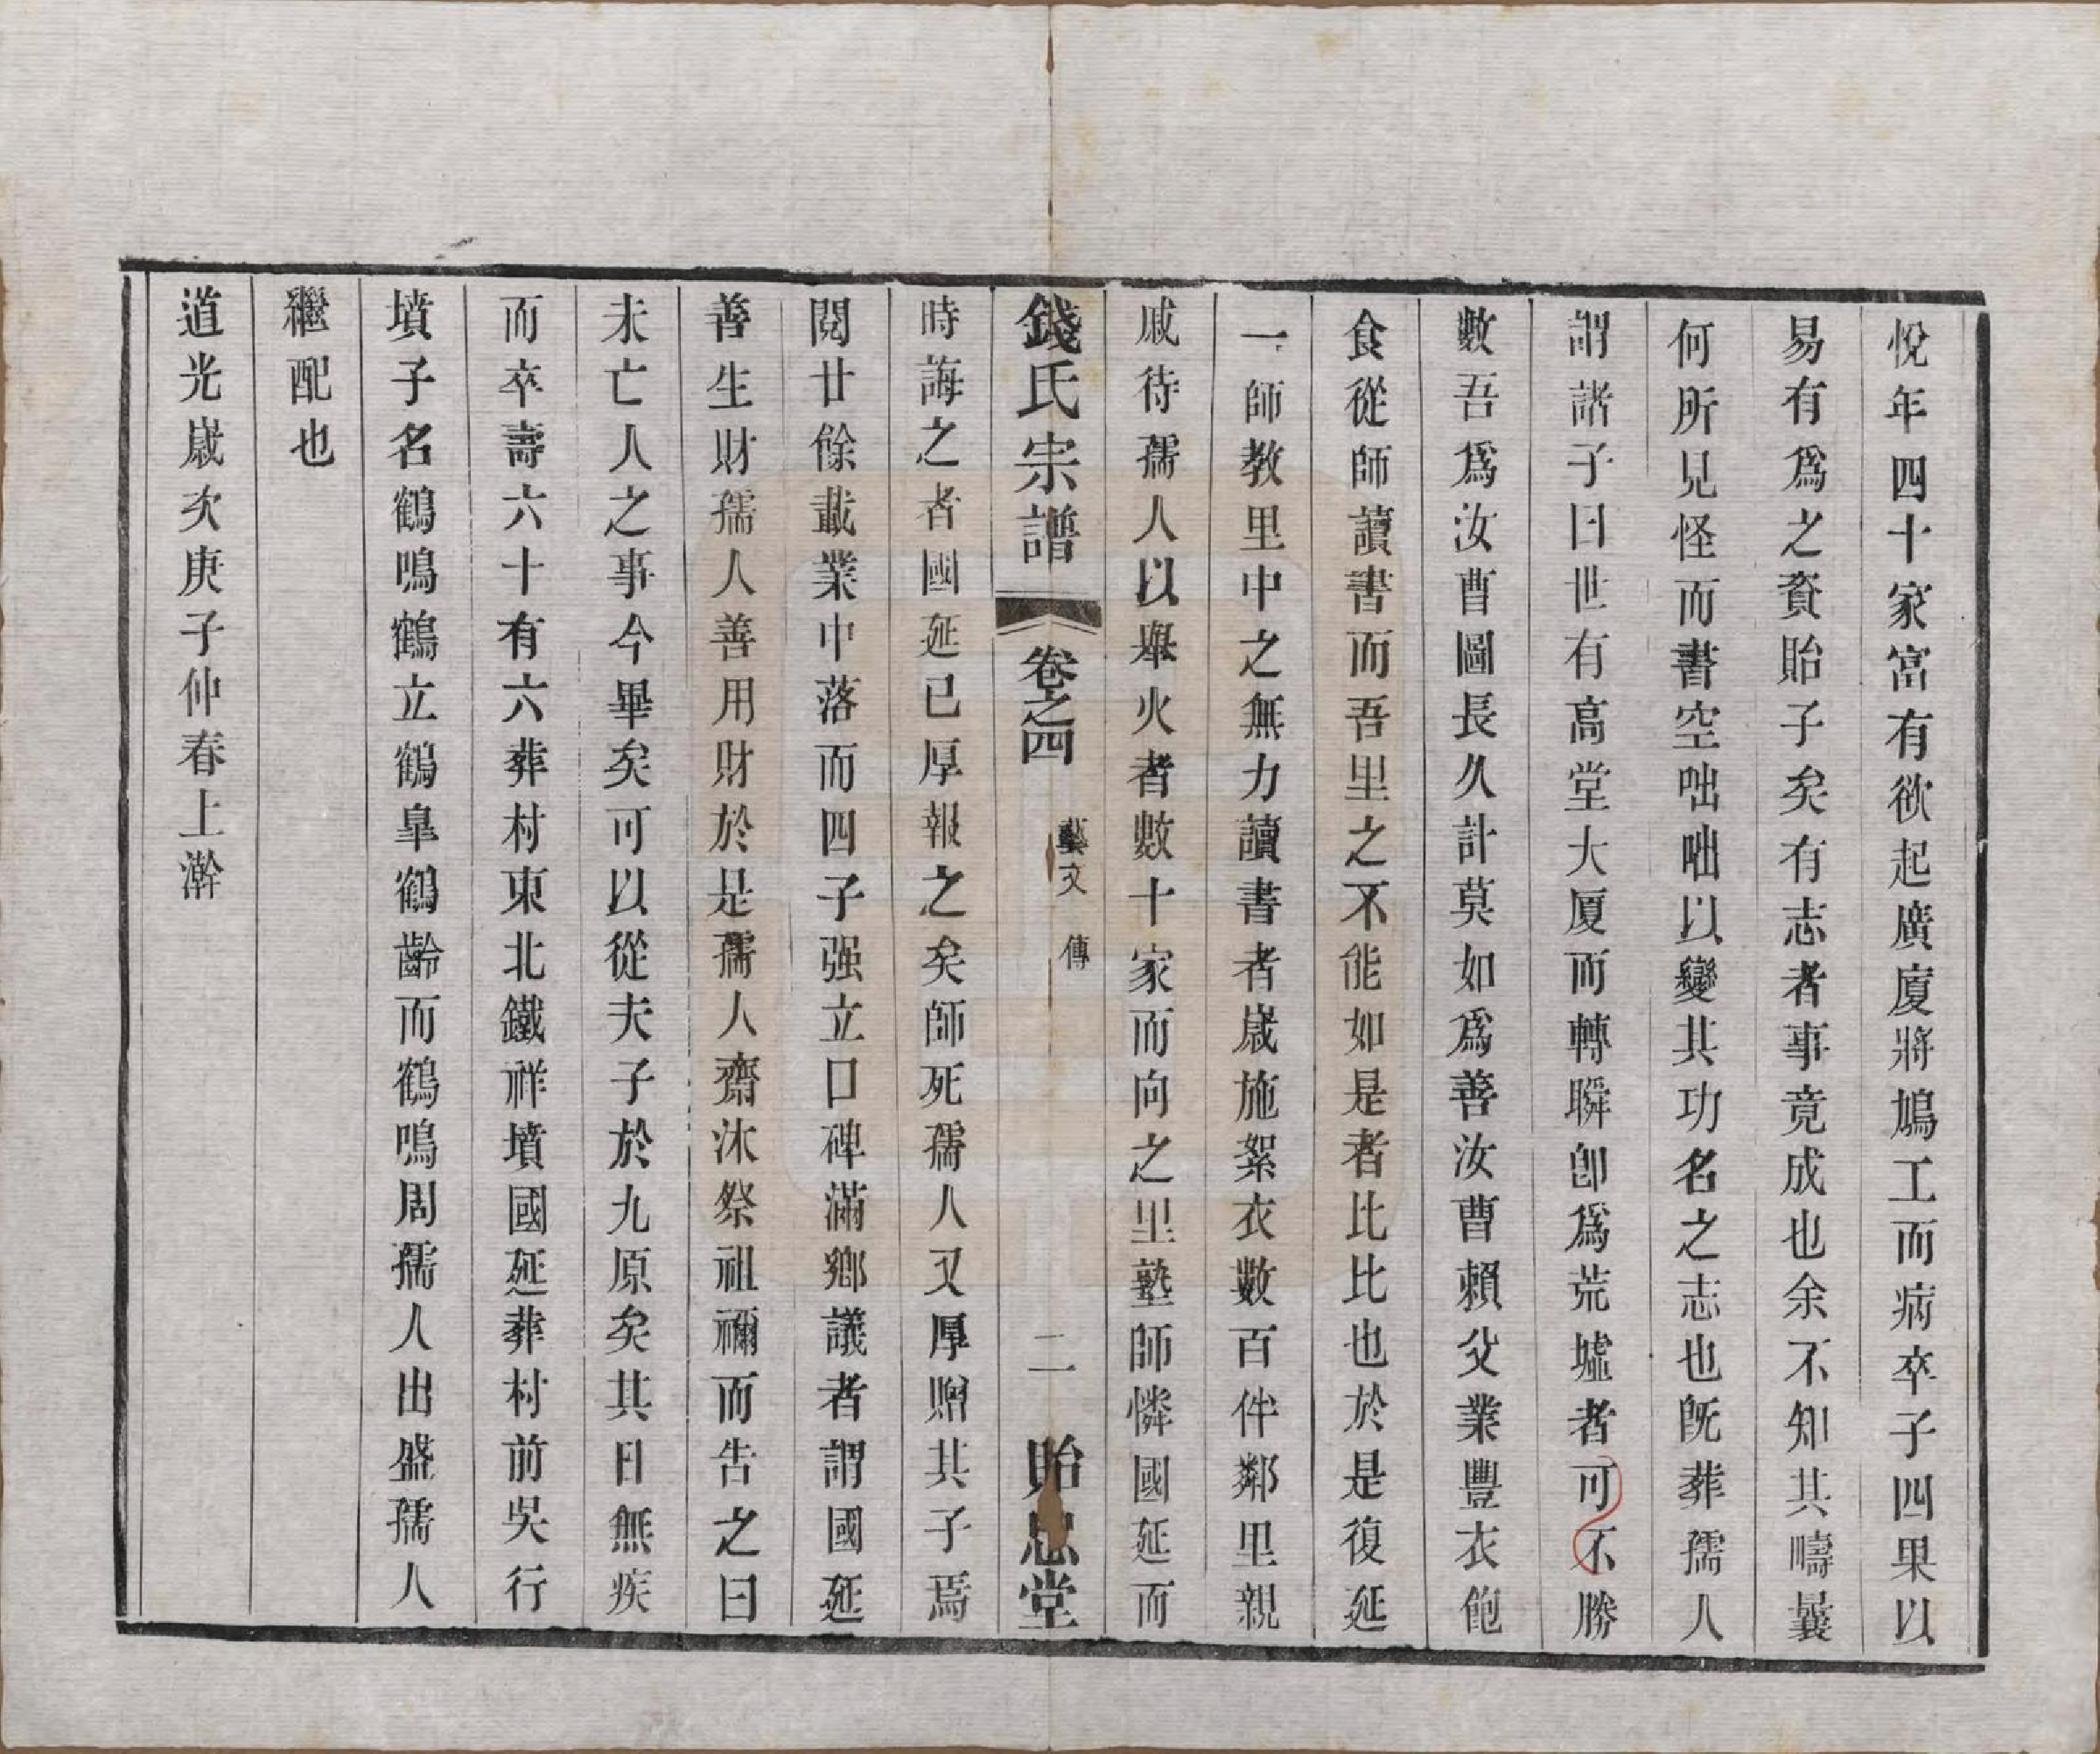 悅年四十家富有欲起廣廈將鳩工而病卒子四果以
易有爲之資貽子矣有志者事竟成也余不知其疇曩
何所見怪而書空咄咄以變其功名之志也旣葬孺人
謂諸子曰世有高堂大厦而轉瞬卽爲荒墟者可不勝
數吾爲汝曹圖長久計莫如爲善汝曹賴父業豐衣飽
食從師讀書而吾里之不能如是者比比也於是復延
一師教里中之無力讀書者歲施絮衣數百件鄰里親
戚待孺人以舉火者數十家而向之里塾師憐國延而
錢氏宗譜 卷之四 藝文 傳 二 貽忠堂
時誨之者國延已厚報之矣師死孺人又厚贈其子焉
閱廿餘載業中落而四子强立口碑滿鄉議者謂國延
善生財孺人善用財於是孺人齋沐祭祖禰而告之曰
未亡人之事今畢矣可以從夫子於九原矣其日無疾
而卒壽六十有六葬村東北鐵祥墳國延葬村前吳行
墳子名鶴鳴鶴立鶴皐鶴齡而鶴鳴周孺人出盛孺人
繼配也
道光歲次庚子仲春上澣